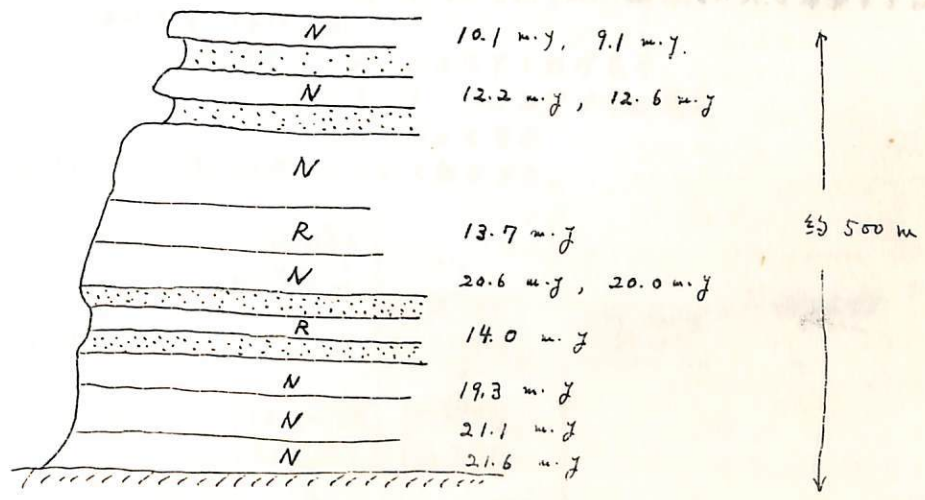 N 10.1 m.y, 9.1 m.y.
N 12.2 m.y, 12.6 m.y
N
R 13.7 m.y
約 500 m
N 20.6 m.y, 20.0 m.y
R 14.0 m.y
N 19.3 m.y
N 21.1 m.y
N 21.6 m.y